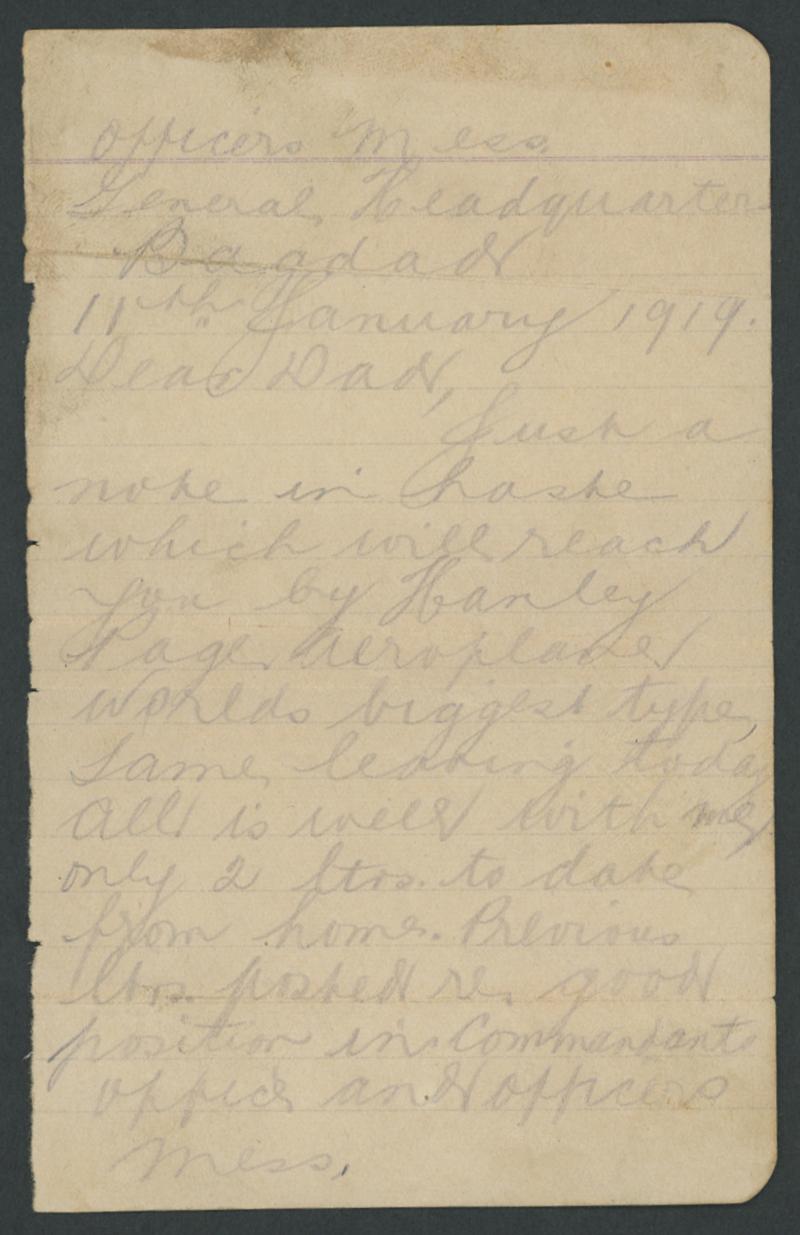 Officers Mess.
General Headquarters
Bagdad
11th January 1919.
Dear Dad,
Just a
note in haste
which will reach
you by Hanley
Page Aeroplane
worlds biggest type,
same leaving today
All is well with me,
only 2 ltrs. to date
from home. Previous
ltrs. posted re. good
position in Commandants
office and officers
mess.